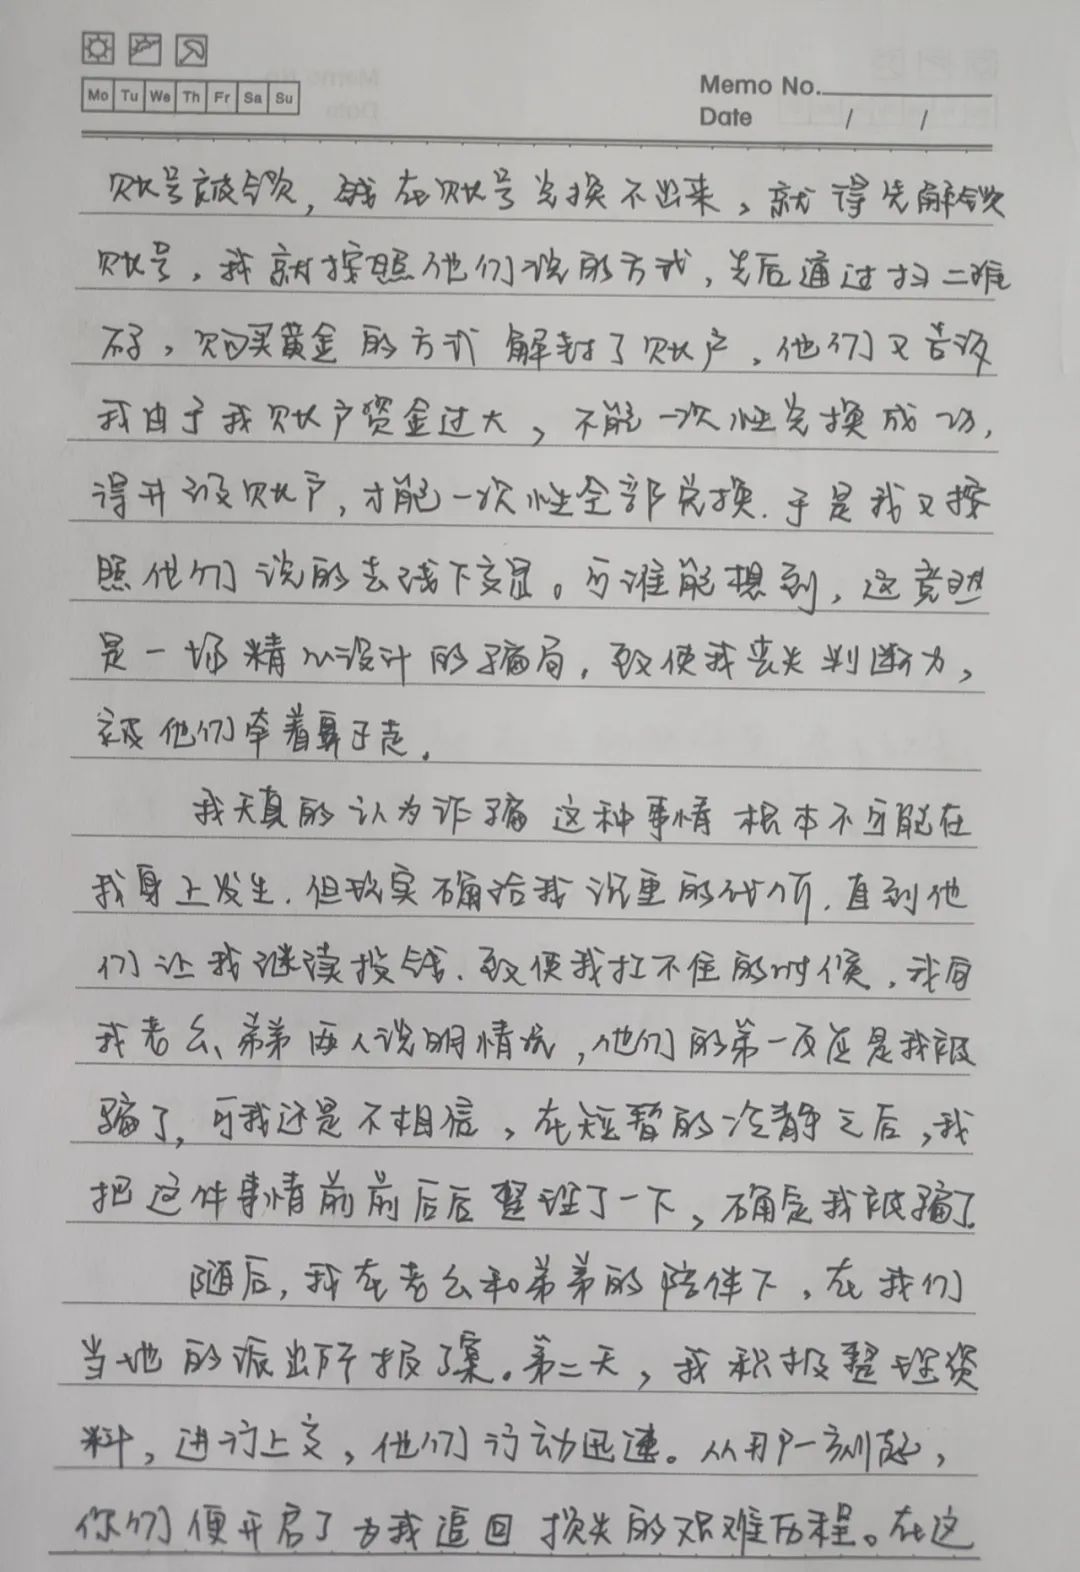 Mo Tu We Th Fr Sa Su
Memo No.
Date / /
账号被锁, 钱在账号兑换不出来, 就得先解锁
账号, 我就按照他们说的方式, 先后通过扫二维
码, 购买黄金的方式解封了账户, 他们又告诉
我由于我账户资金过大, 不能一次性兑换成功,
得升级账户, 才能一次性全部兑换. 于是我又按
照他们说的去线下交易。可谁能想到, 这竟然
是一场精心设计的骗局, 致使我丧失判断力,
被他们牵着鼻子走.
我天真的认为诈骗这种事情根本不可能在
我身上发生. 但现实确给我沉重的代价. 直到他
们让我继续投钱. 致使我扛不住的时候, 我同
我老公、弟弟两人说明情况, 他们的第一反应是我被
骗了, 可我还是不相信, 在短暂的冷静之后, 我
把这件事情前前后后整理了一下, 确定我被骗了
随后, 我在老公和弟弟的陪伴下, 在我们
当地的派出所报了案。第二天, 我积极整理资
料, 进行上交, 他们行动迅速。从那一刻起,
你们便开启了为我追回损失的艰难历程。在这